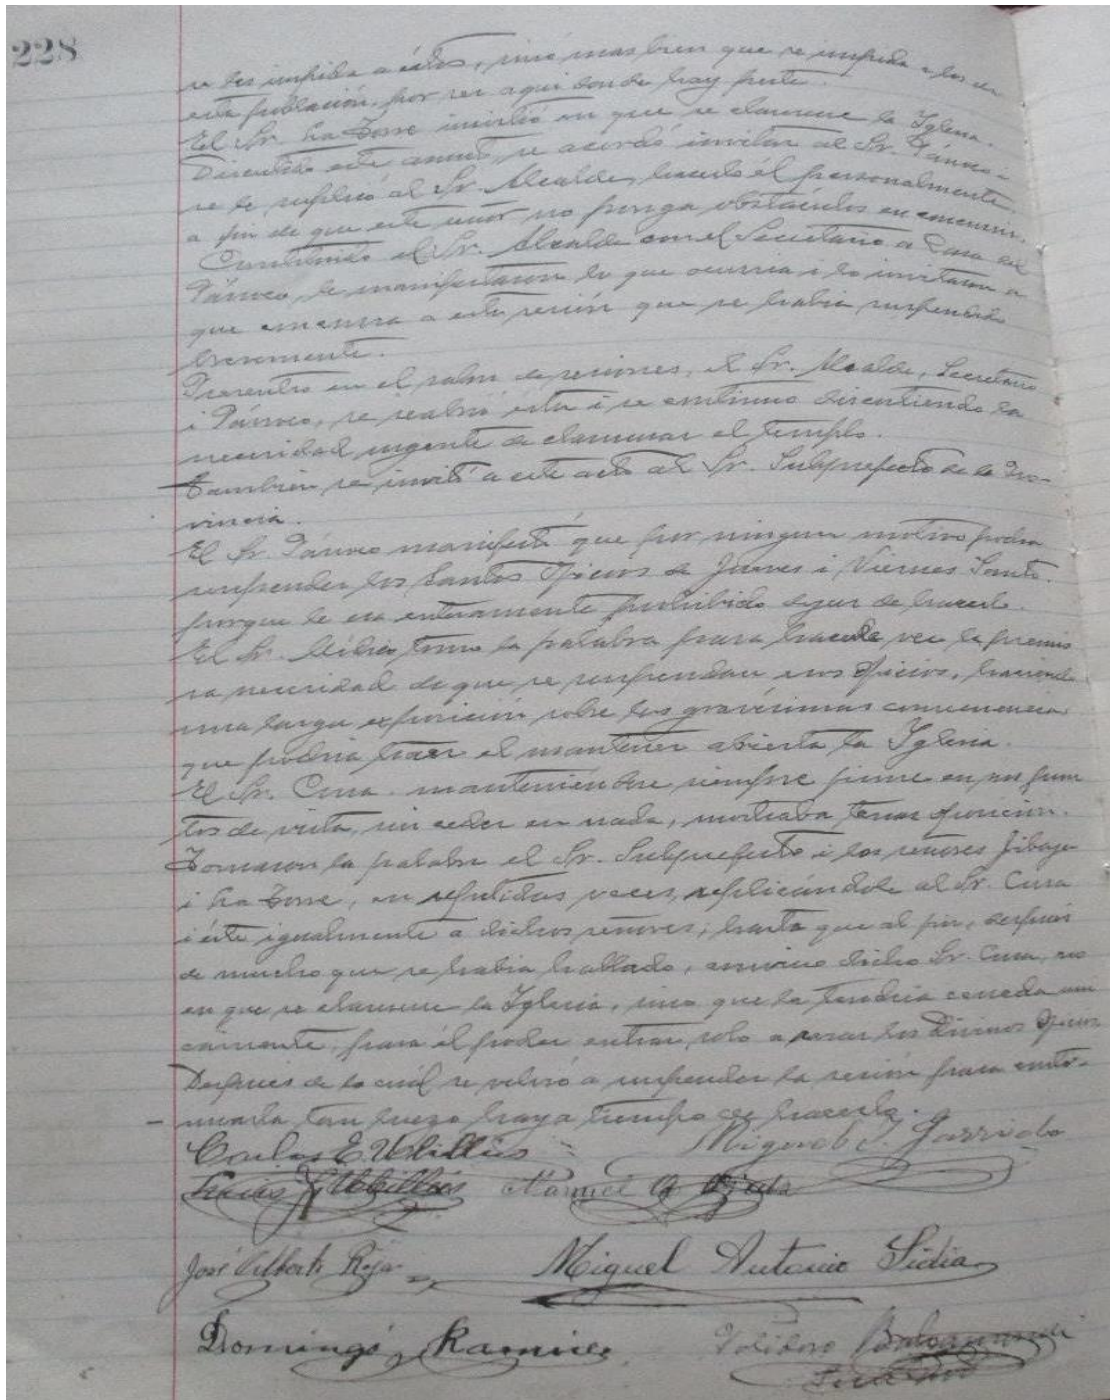 228
se les impida a éstos, sinó mas bien que se impida a los de
esta población, por ser aqui donde hay peste.
El Sr. La Torre insistió en que se clausure la Iglesia.
Discutido este asunto, se acordó invitar al Sr. Párroco
se le suplicó al Sr. Alcalde, hacerlo él personalmente,
a fin de que este señor no ponga obstáculos en concurrir.
Constituido el Sr. Alcalde con el Secretario a Casa del
Párroco, le manifestaron lo que ocurria i lo invitaron a
que concurra a esta sesión que se habia suspendido
brevemente.
Presentes en el salon de sesiones, el Sr. Alcalde, Secretario
i Párroco, se reabrió ésta i se continuó discutiendo la
necesidad urgente de clausurar el templo.
Tambien se invitó a este acto al Sr. Subprefecto de la Pro-
vincia.
El Sr. Párroco manifestó que por ningun motivo podia
suspender los Santos Oficios de Jueves i Viernes Santo.
porque le era enteramente prohibido dejar de hacerlo.
El Sr. tomo la palabra para hacerle ver la
sa necesidad de que se suspendan esos oficios, haciendo
una larga exposición sobre las gravísimas consecuencias
que podria traer el mantener abierta la Iglesia.
El Sr. Cura manteniendose siempre firme en sus pun
tos de vista, sin ceder en nada, mostraba tenaz oposicion.
Tomaron la palabra el Sr. Subprefecto i los señores Jibaja
i La Torre, en repetidas veces, replicándole al Sr. Cura
i éste igualmente a dichos señores; hasta que al fin, despues
de mucho que se habia hablado, convino dicho Sr. Cura, no
en que se clausure la Iglesia, sino que la tendria cerrada uni
camente, para él poder entrar solo a rezar los Divinos Oficios
Despues de lo cuál se volvió a suspender la sesión para conti-
nuarla tan luego haya tiempo de hacerlo.
Carlos E. Ubillús Miguel J. Garrido
Ubillús Manuel Ojeda
José Alberto Rojas Miguel Antonio
Domingo Ramirez